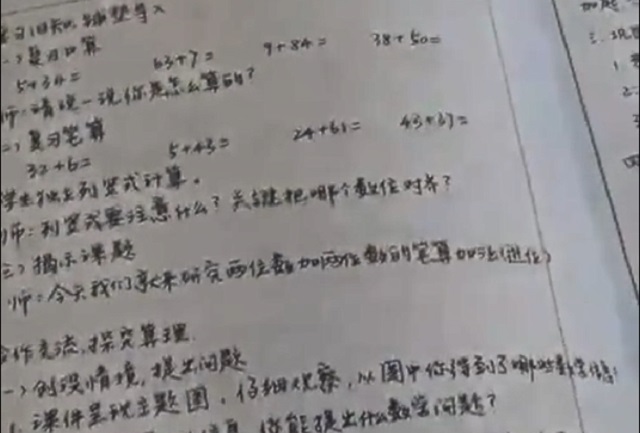 复习旧知,铺垫导入
一)复习口算
5+34= 63+7= 9+84= 38+50=
师:请说一说你是怎么算的?
二)复习笔算
32+6= 5+43= 24+61= 43+37=
学生独立列竖式计算。
师:列竖式要注意什么?关键把哪个数位对齐?
三)揭示课题
师:今天我们就来研究两位数加两位数的笔算加法(进位)
合作交流,探究算理
一)创设情境,提出问题
1. 课件呈现主题图,仔细观察,从图中你得到了哪些数学信息
信息,你能提出什么数学问题?
三、巩
1
2
四